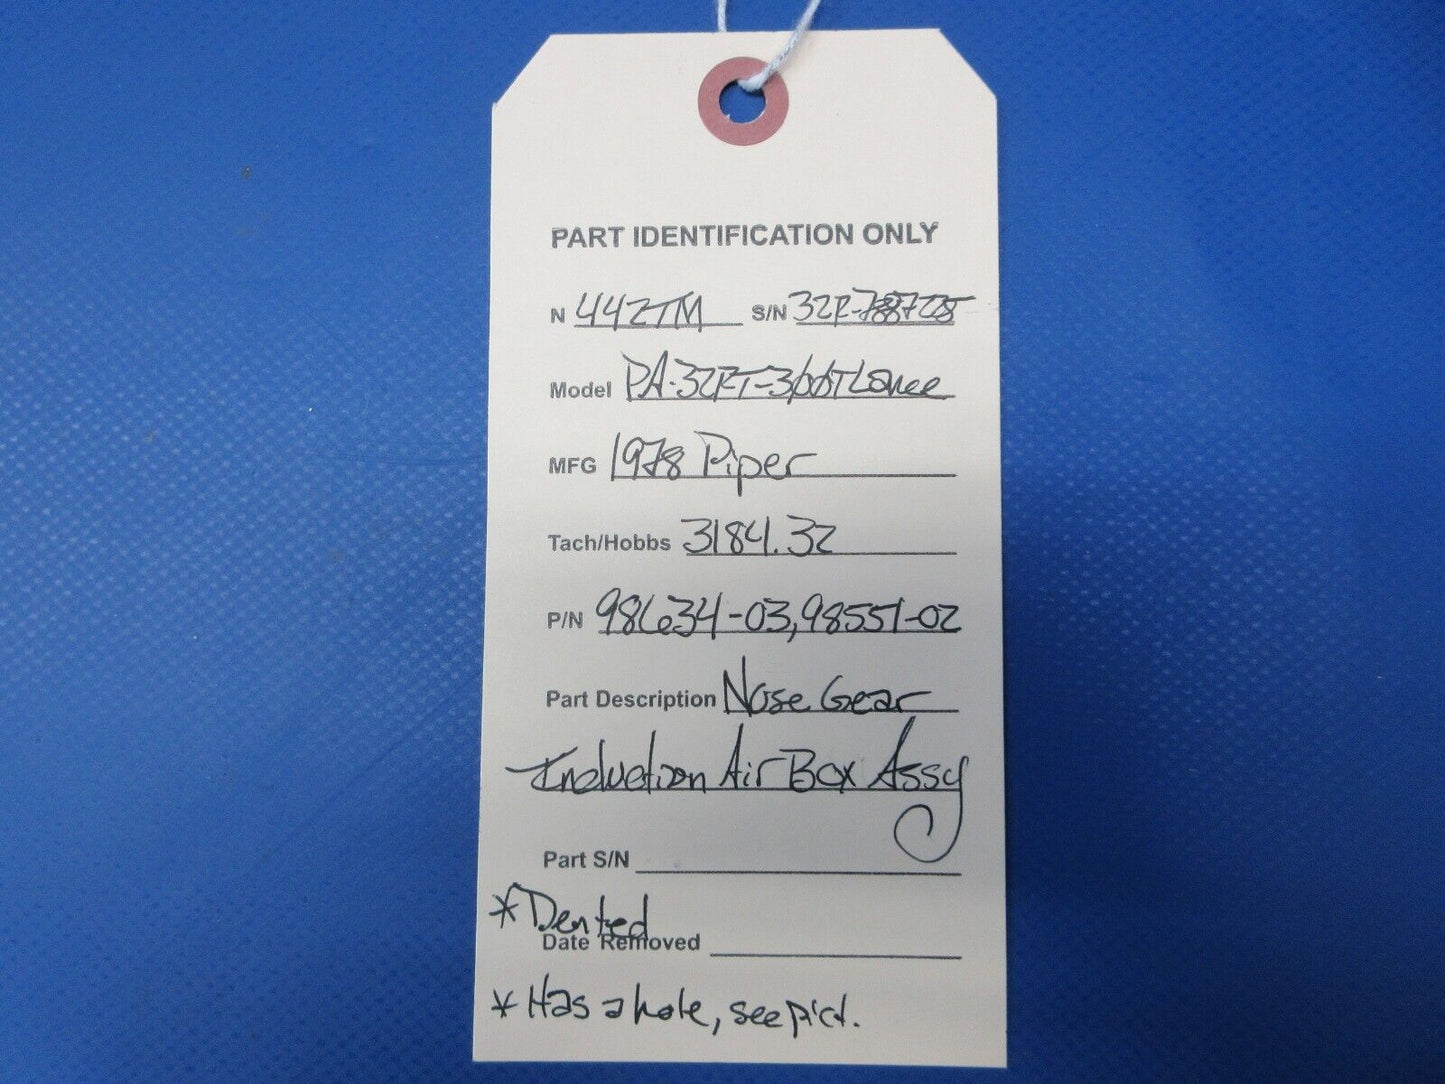 PART IDENTIFICATION ONLY
N 442TM S/N 32R-7887225
Model PA-32RT-300T Lance
MFG 1978 Piper
Tach/Hobbs 3184.32
P/N 98634-03, 98551-02
Part Description Nose Gear
Induction Air Box Assy
Part S/N
* Dented
Date Removed
* Has a hole, see pict.